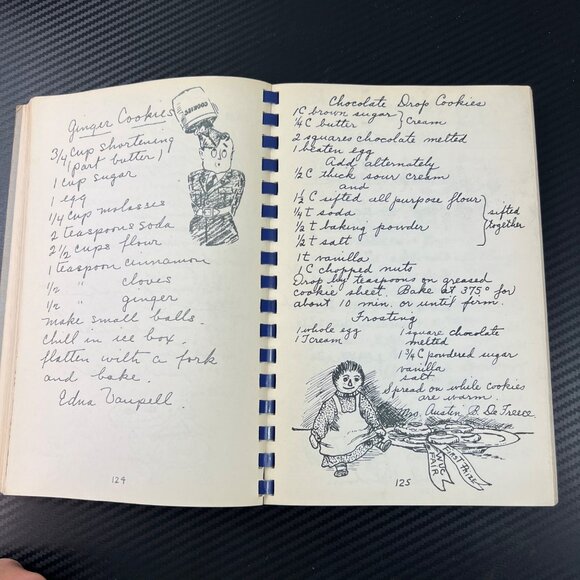 Ginger Cookies
3/4 cup shortening
(part butter)
1 cup sugar
1 egg
1/4 cup molasses
2 teaspoons soda
2 1/2 cups flour
1 teaspoon cinnamon
1/2 " cloves
1/2 " ginger
make small balls.
chill in ice box.
flatten with a fork
and bake.
Edna Vaupell.
124
COOKIES
Chocolate Drop Cookies
1C brown sugar
1/4 C butter } cream
2 squares chocolate melted
1 beaten egg
Add alternately
1/2 C thick sour cream
and
1 1/2 C sifted all purpose flour
1/4 t soda
1/2 t baking powder
1/2 t salt
} sifted together
1 t vanilla
1 C chopped nuts
Drop by teaspoons on greased
cookie sheet. Bake at 375° for
about 10 min. or until firm.
Frosting
1 whole egg
1 T cream
1 square chocolate
melted
1 3/4 C powdered sugar
vanilla
salt
Spread on while cookies
are warm.
Mrs. Austin B. De Freece
FIRST PRIZE
FAIR
125